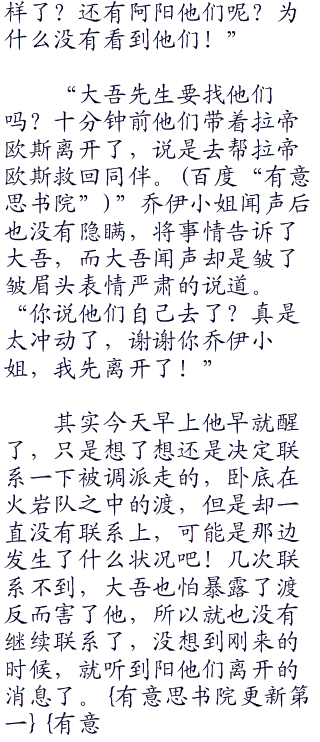 样了？还有阿阳他们呢？为
什么没有看到他们！”
“大吾先生要找他们
吗？十分钟前他们带着拉帝
欧斯离开了，说是去帮拉帝
欧斯救回同伴。(百度“有意
思书院”)”乔伊小姐闻声后
也没有隐瞒，将事情告诉了
大吾，而大吾闻声却是皱了
皱眉头表情严肃的说道。
“你说他们自己去了？真是
太冲动了，谢谢你乔伊小
姐，我先离开了！”
其实今天早上他早就醒
了，只是想了想还是决定联
系一下被调派走的，卧底在
火岩队之中的渡，但是却一
直没有联系上，可能是那边
发生了什么状况吧！几次联
系不到，大吾也怕暴露了渡
反而害了他，所以就也没有
继续联系了，没想到刚来的
时候，就听到阳他们离开的
消息了。{有意思书院更新第
一}{有意